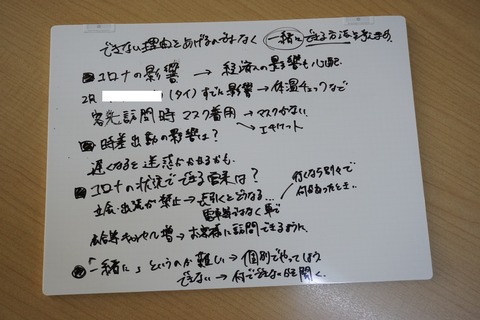 できない理由をあげるのではなく 一緒にできる方法を考えます。
コロナの影響 → 経済への影響も心配
2月 (タイ)すでに影響 → 体温チェックなど
客先訪問時 マスク着用 → マスクがない
→ エチケット
時差出勤の影響は?
遅くなると迷惑かかるかも
コロナの状況でできる営業は?
立会・出張が禁止 → 長引くとどうなる…
電車等ではなく車で
行くなら別々で
何かあったとき…
キャンセル増 → お客様に訪問できるように
「一緒に」というのが難しい → 個別でやってしまう
できない → 何でできないのを聞く。